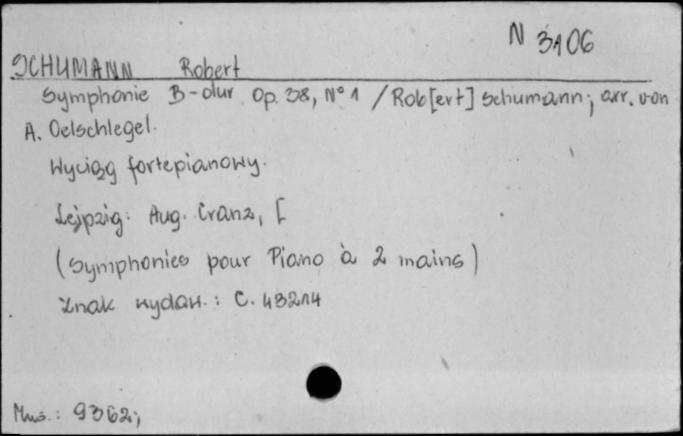 N 3106
SCHUMANN Robert
Symphonie B-dur Op. 38, N° 1 / Rob[ert] Schumann; arr. von
A. Oelschlegel.
Wyciąg fortepianowy.
Lejpzig: Aug. Cranz, [
(Symphonies pour Piano à 2 mains)
Znak wydaw.: C. 43214
Mus.: 9362;